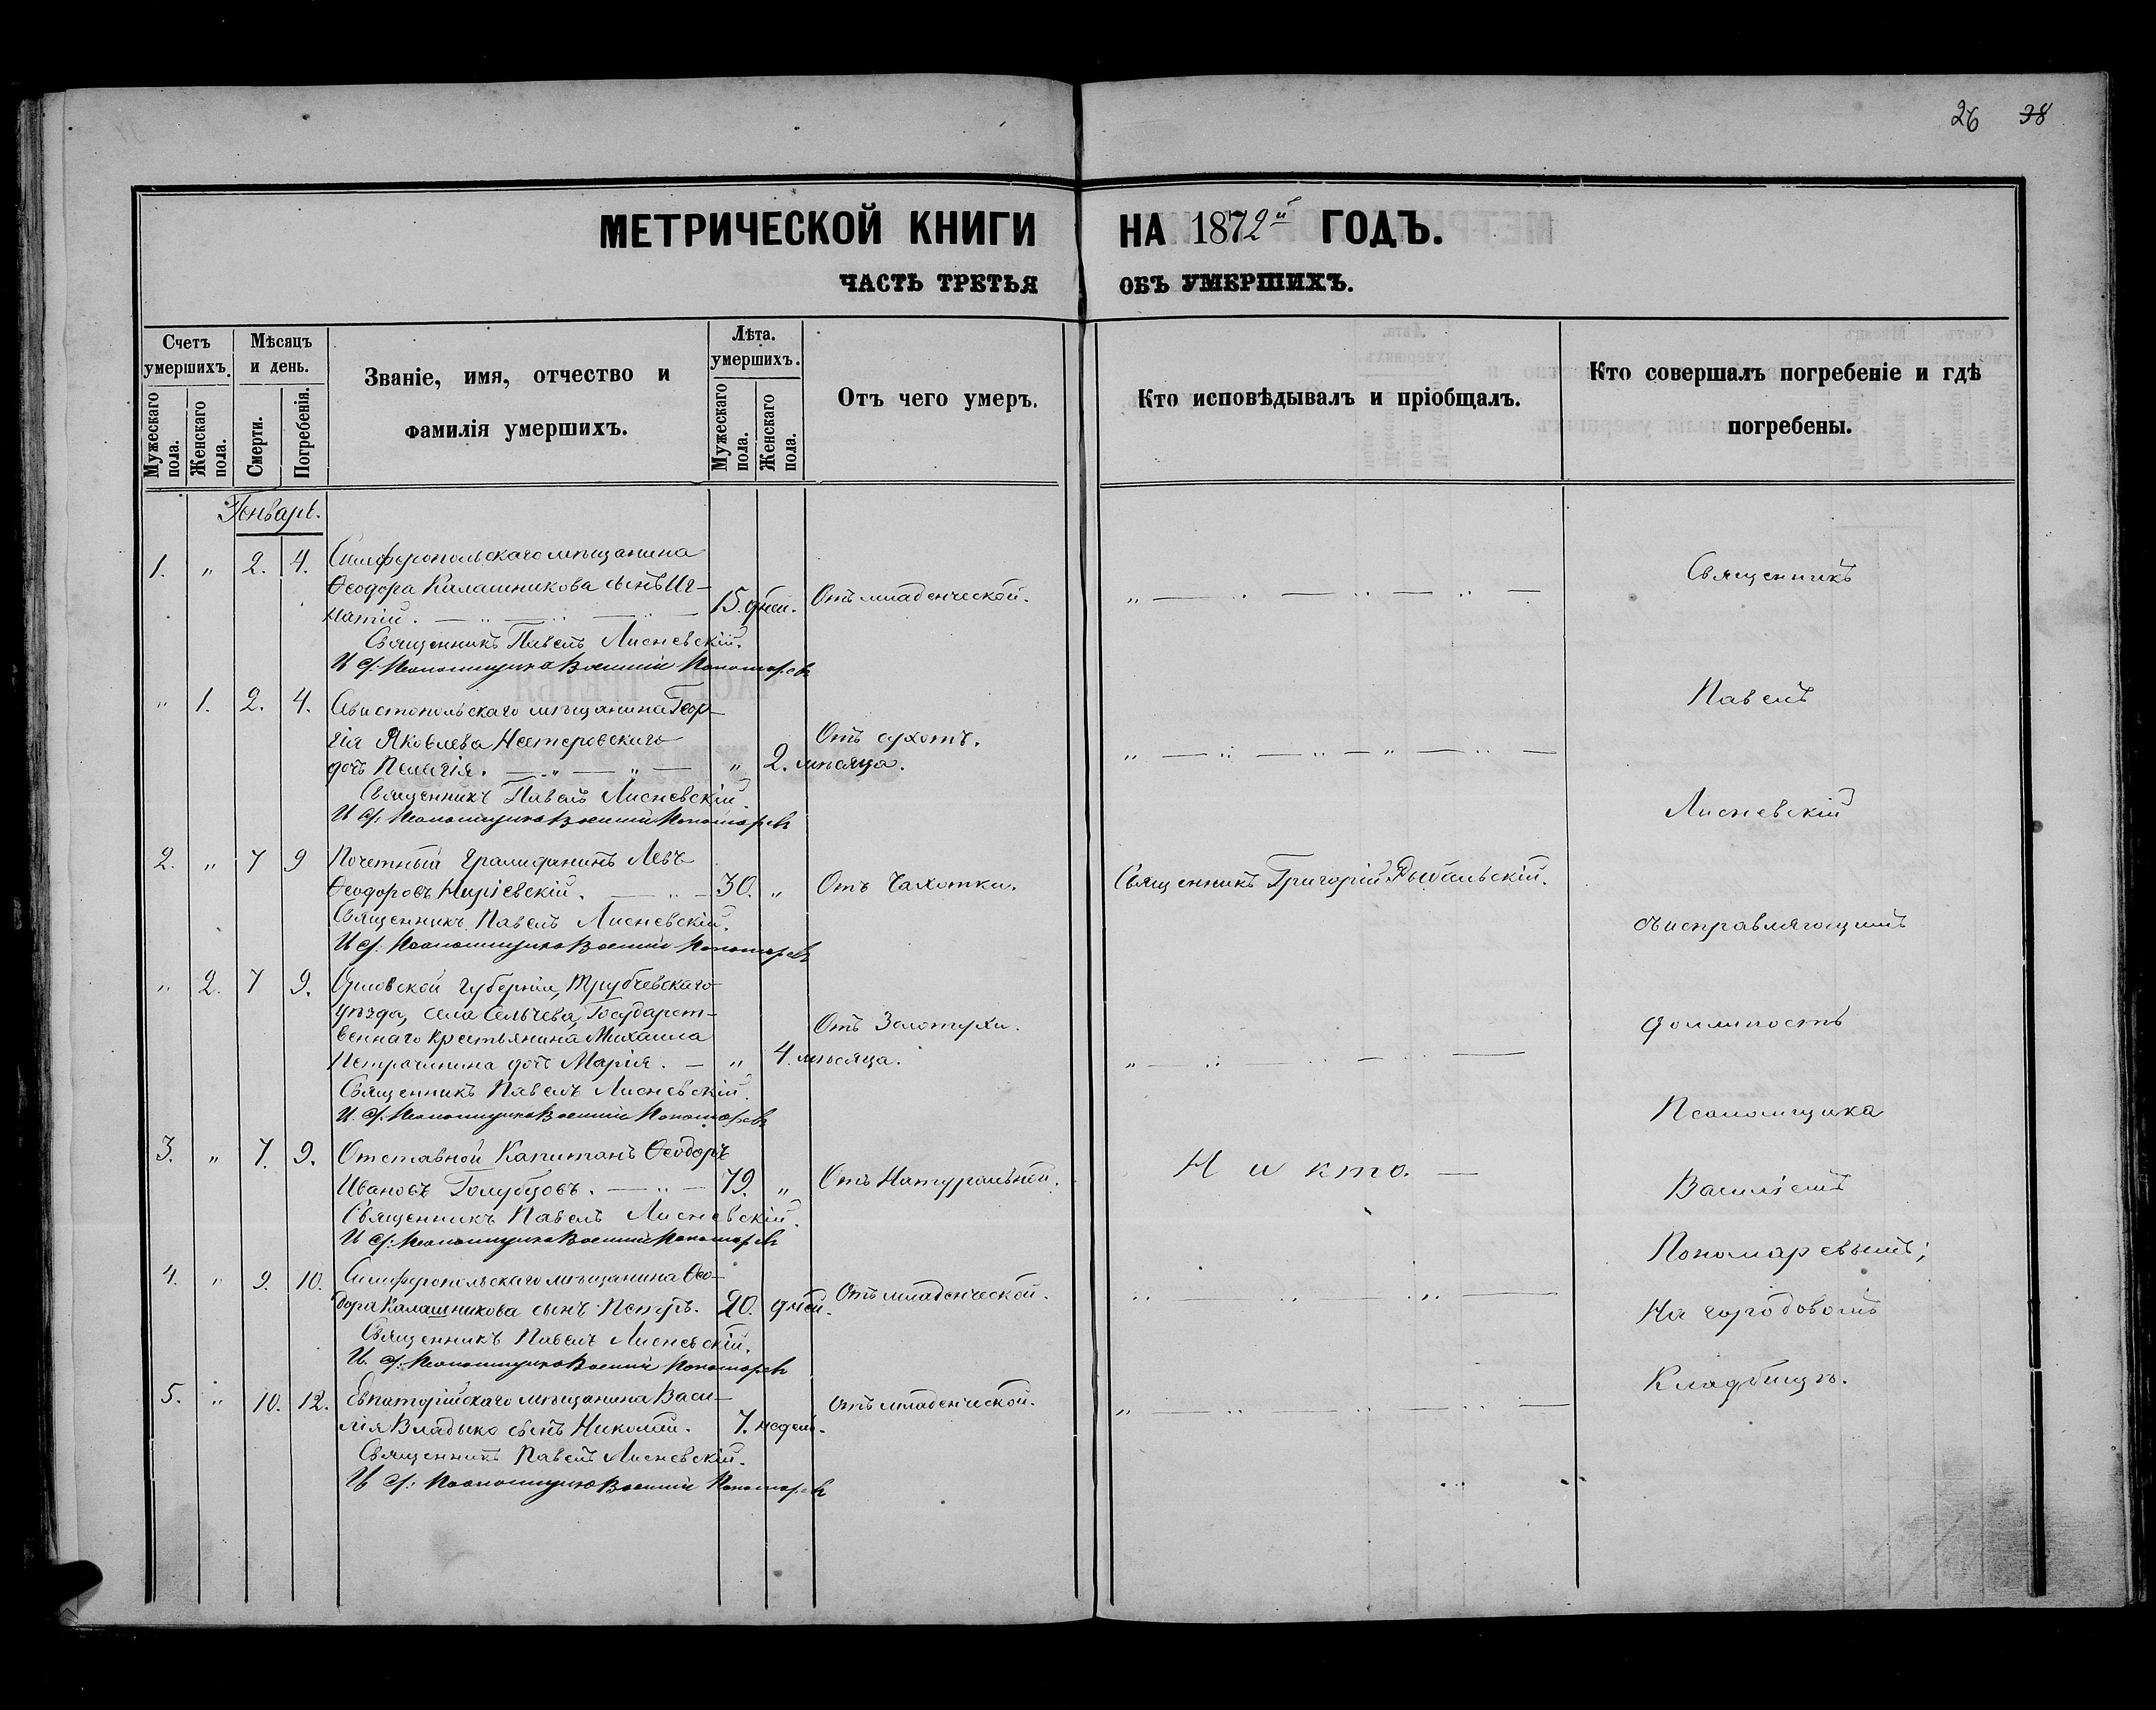 26 38
МЕТРИЧЕСКОЙ КНИГИ НА 1872й ГОДЪ.
ЧАСТЬ ТРЕТЬЯ ОБЪ УМЕРШИХЪ.
Счетъ умершихъ.
Мужескаго пола.
Женскаго пола.
Мѣсяцъ и день.
Смерти.
Погребенія.
Званіе, имя, отчество и
фамилія умершихъ.
Лѣта. умершихъ.
Мужескаго пола.
Женскаго пола.
Отъ чего умеръ.
Кто исповѣдывалъ и пріобщалъ.
Кто совершалъ погребеніе и гдѣ
погребены.
Генварь.
1. „ 2. 4. Симферопольскаго мѣщанина
Ѳеодора Калашникова сынъ Иг-
натій. 15. дней. Отъ младенческой.
Священникъ Павелъ Лисневскій.
И. д. Псаломщика Василій Пономаревъ
„ 1. 2. 4. Севастопольскаго мѣщанина Геор-
гія Яковлева Нестеровскаго
дочь Пелагія. „ 2. мѣсяца. Отъ сухотъ.
Священникъ Павелъ Лисневскій.
И. д. Псаломщика Василій Пономаревъ
2. „ 7 9 Почетный гражданинъ Левъ
Ѳеодоровъ 30. „ Отъ Чахотки. Священникъ Григорій
Священникъ Павелъ Лисневскій.
И. д. Псаломщика Василій Пономаревъ
„ 2. 7 9. Орловской губерніи, Трубчевскаго
уѣзда, села Сельчева, Государст-
веннаго крестьянина Михаила
Петрочинина дочь Марія. „ 4. мѣсяца. Отъ Золотухи.
Священникъ Павелъ Лисневскій.
И. д. Псаломщика Василій Пономаревъ
3. „ 7. 9. Отставной Капитанъ Ѳеодоръ
Ивановъ Голубцовъ. 79. „ Отъ Натуральной. Никто.
Священникъ Павелъ Лисневскій.
И. д. Псаломщика Василій Пономаревъ
4. „ 9. 10. Симферопольскаго мѣщанина Ѳео-
дора Калашникова сынъ Петръ. 20. дней. Отъ младенческой.
Священникъ Павелъ Лисневскій.
И. д. Псаломщика Василій Пономаревъ
5. „ 10. 12. Евпаторійскаго мѣщанина Васи-
лія Владыко сынъ Николай. 7. недель. Отъ младенческой.
Священникъ Павелъ Лисневскій.
И. д. Псаломщика Василій Пономаревъ
Священникъ
Павелъ
Лисневскій
съ исправляющимъ
должность
Псаломщика
Василіемъ
Пономаревымъ;
На городовомъ
Кладбищѣ.